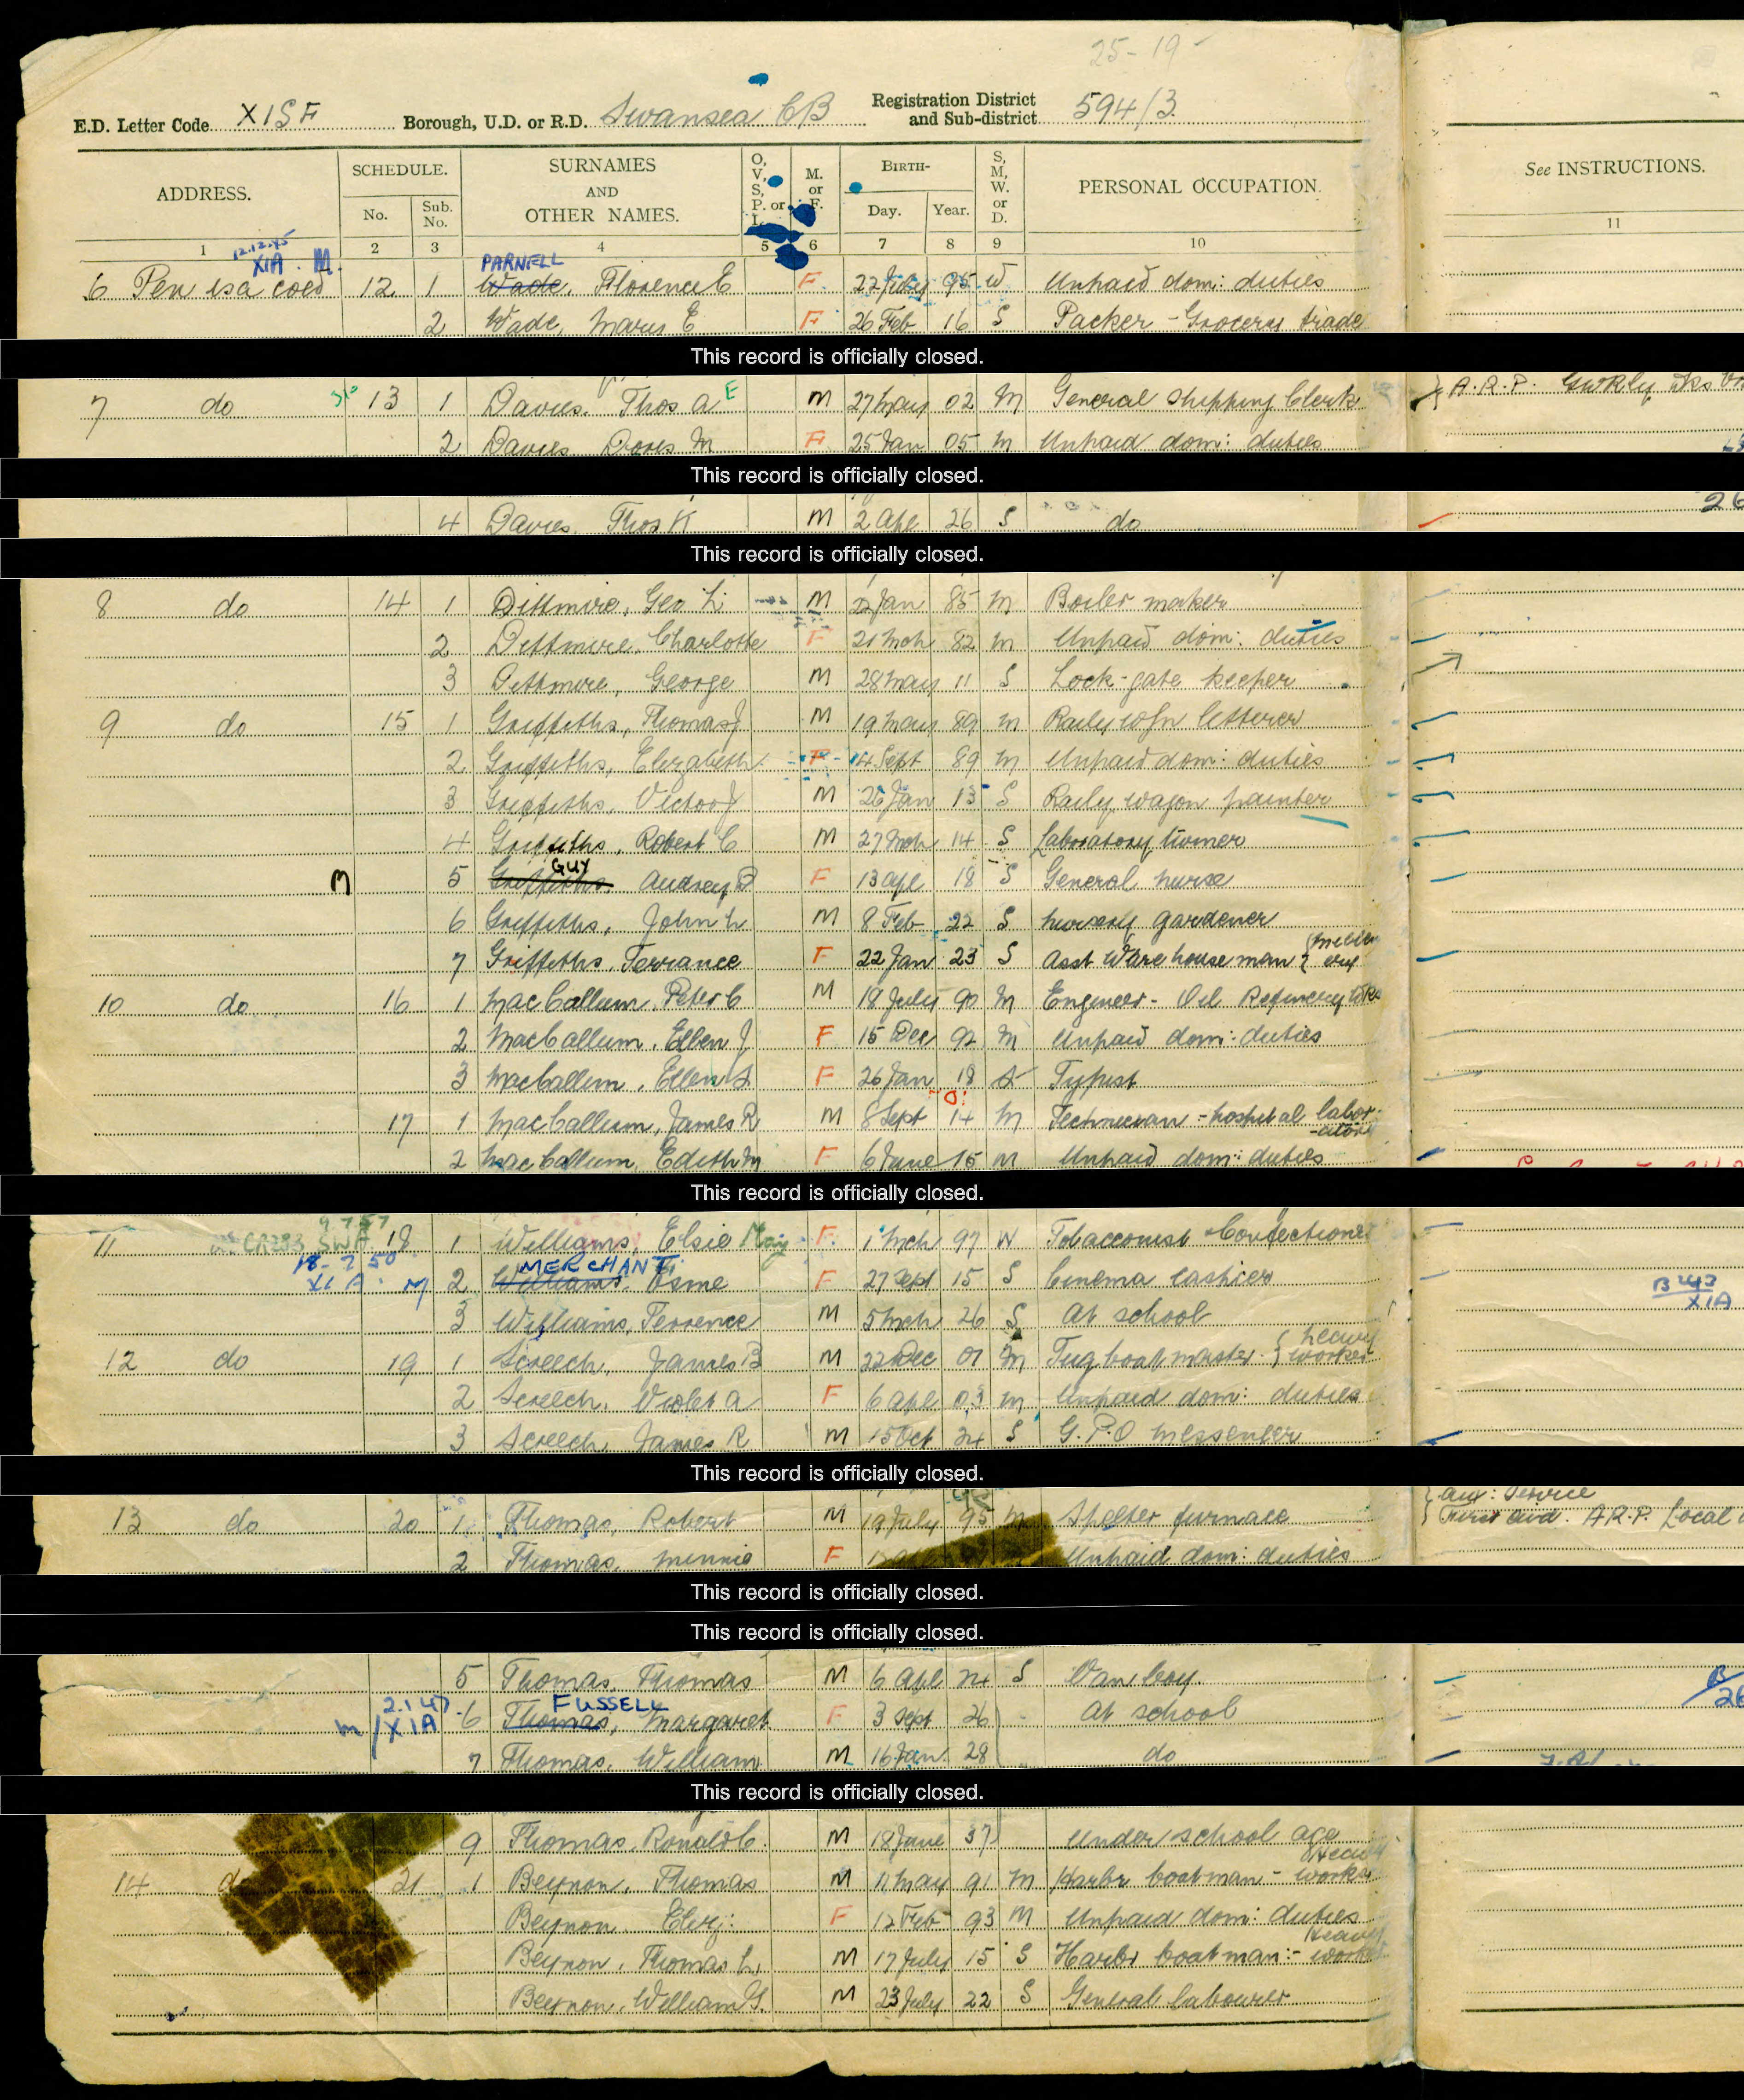 25-19-
E.D. Letter Code XISF Borough, U.D. or R.D. Swansea CB Registration District and Sub-district 594/3
ADDRESS. SCHEDULE. No. Sub. No. SURNAMES AND OTHER NAMES. O, V, S, P. or I. M. or F. BIRTH- Day. Year. S, M, W. or D. PERSONAL OCCUPATION. See INSTRUCTIONS.
1 2 3 4 5 6 7 8 9 10 11
12.12.45 XIA. M. PARNELL
6 Pen isa coed 12 1 Wade, Florence E F 22 July 95 W Unpaid dom: duties
2 Wade, Mary E F 26 Feb 16 S Packer - Grocery trade
This record is officially closed.
7 do 13 1 Davies. Thos A E M 27 May 02 M General Shipping Clerk A.R.P.
2 Davies Doris M F 25 Jan 05 M Unpaid dom: duties
This record is officially closed.
4 Davies. Thos K M 2 Apl 26 S do 26
This record is officially closed.
8 do 14 1 Dittmire, Geo L M 22 Jan 85 M Boiler maker
2 Dittmire, Charlotte F 21 Mch 82 M Unpaid dom: duties
3 Dittmire, George M 28 May 11 S Lock-gate keeper
9 do 15 1 Griffiths, Thomas J M 19 May 89 M Raily wgn letterer
2 Griffiths, Elizabeth F 14 Sept 89 M Unpaid dom: duties
3 Griffiths, Victor J M 26 Jan 13 S Raily wagon painter
4 Griffiths, Robert C M 27 Mch 14 S Laboratory
GUY
M 5 Griffiths. Audrey B F 13 Apl 18 S General nurse
6 Griffiths, John L M 8 Feb 22 S nursery gardener
7 Griffiths. Terrance F 22 Jan 23 S Asst Warehouseman
10 do 16 1 MacCallum, Peter C M 18 July 90 M Engineer - Oil Refinery Wks
2 MacCallum, Ellen J F 15 Dec 92 M Unpaid dom: duties
3 MacCallum, Ellen S F 26 Jan 18 S Typist
17 1 MacCallum, James R M 8 Sept 14 M Technician - hospital labor-atory
2 MacCallum, Edith M F 6 June 15 M Unpaid dom: duties
This record is officially closed.
9.7.57
11 CR283 SWA 18 1 Williams, Elsie May F 1 Mch 97 W Tobacconist & Confectioner
18-7-50 MERCHANT
XIA. M 2 Williams. Esme F 27 Sept 15 S Cinema cashier B 43 XIA
3 Williams, Terrence M 5 Mch 26 S At school
12 do 19 1 Screech, James B M 22 Dec 01 M Tug boat master. { heavy worker
2 Screech, Violet A F 6 Apl 03 M Unpaid dom: duties
3 Screech, James R M 15 Oct 24 S G.P.O messenger
This record is officially closed.
Aux: Service
13 do 20 1 Thomas, Robert M 19 July 95 M Spelter furnace First aid. A.R.P. Local
2 Thomas, Minnie F Unpaid dom: duties
This record is officially closed.
This record is officially closed.
5 Thomas, Thomas M 6 Apl 24 S Van boy.
2.1.47 FUSSELL
M XIA 6 Thomas, Margaret F 3 Sept 26 At school
7 Thomas, William M 16 Jan 28 do
This record is officially closed.
9 Thomas, Ronald C. M 18 June 37 Under school age
14 do 21 1 Beynon, Thomas M 11 May 91 M Harbr boatman - heavy worker
Beynon. Eliz: F 12 Feb 93 M Unpaid dom: duties
Beynon, Thomas L. M 17 July 15 S Harbr boatman: - heavy worker
Beynon, William G. M 23 July 22 S General labourer